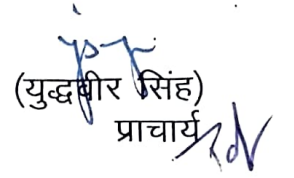 (युद्धवीर सिंह)
प्राचार्य